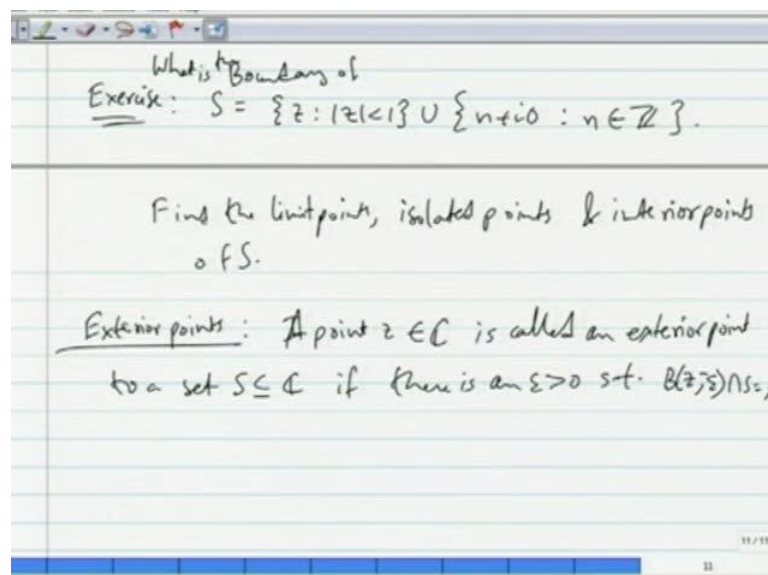 What is the Boundary of
Exercise: S = {z : |z|<1} ∪ {n+i0 : n ∈ ℤ}.
Find the limit points, isolated points & interior points
of S.
Exterior points: A point z ∈ ℂ is called an exterior point
to a set S ⊆ ℂ if there is an ε>0 s.t. B(z;ε)∩S=
11/11
11